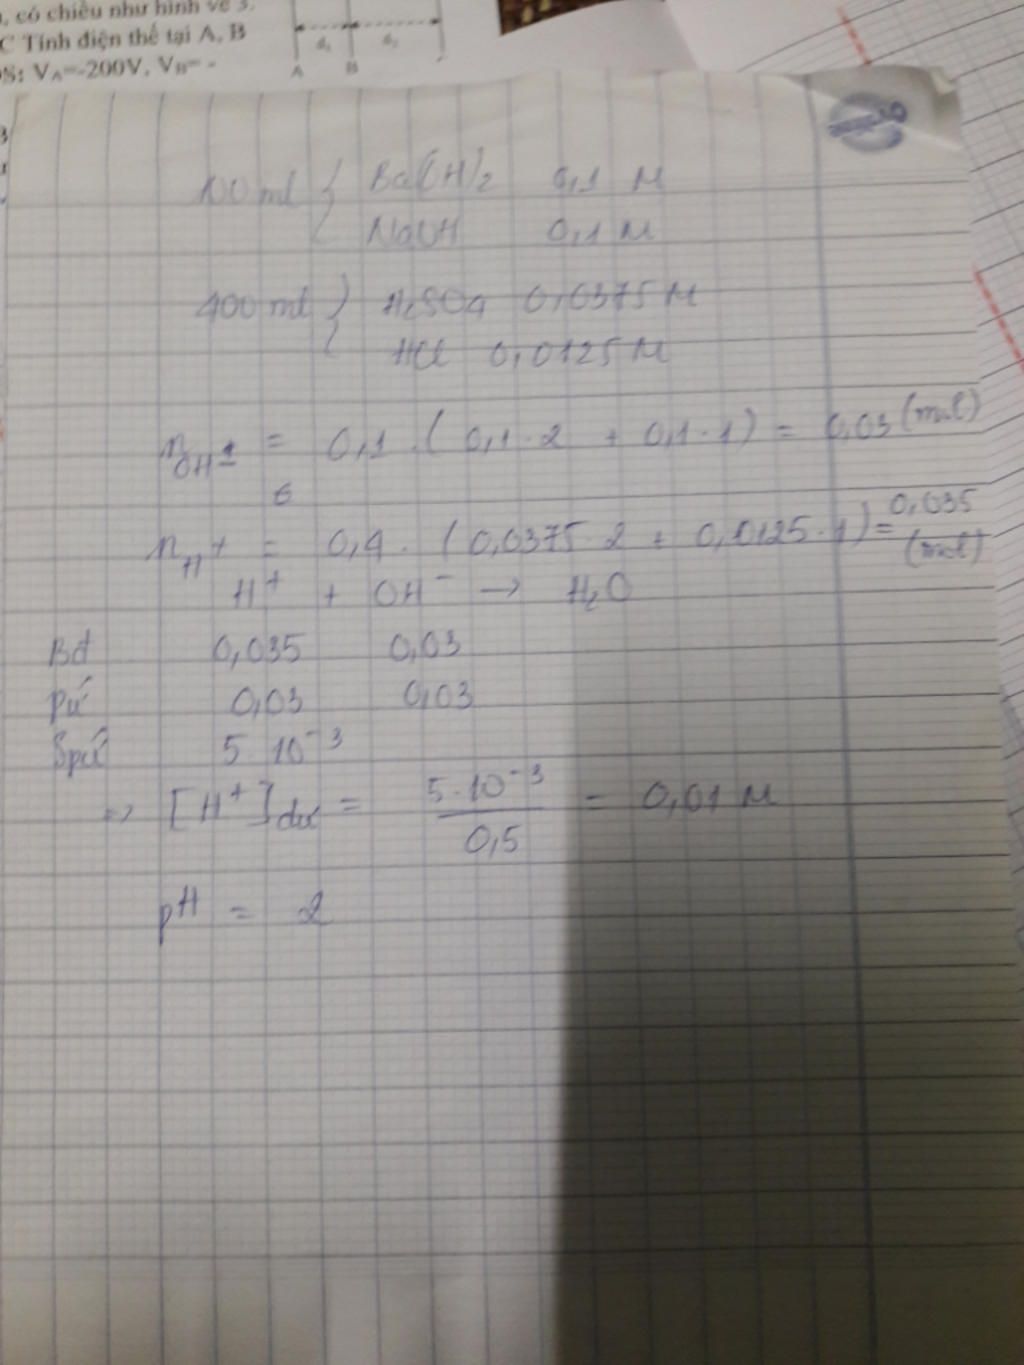 , có chiều như hình vẽ 3.
C Tính điện thế tại A, B
ĐS: V_A=-200V, V_B= -
d₁ d₂
A B
100 ml { Ba(OH)2 0,1 M
NaOH 0,1 M
400 ml } H2SO4 0,0375 M
HCl 0,0125 M
n OH- = 0,1 . ( 0,1 . 2 + 0,1 . 1 ) = 0,03 (mol)
6
n H+ = 0,4 . ( 0,0375 . 2 + 0,0125 . 1 ) = 0,035 (mol)
H+ + OH- → H2O
Bđ 0,035 0,03
Pứ 0,03 0,03
Spứ 5 . 10⁻³
=> [H+] dư = 5 . 10⁻³ / 0,5 = 0,01 M
pH = 2